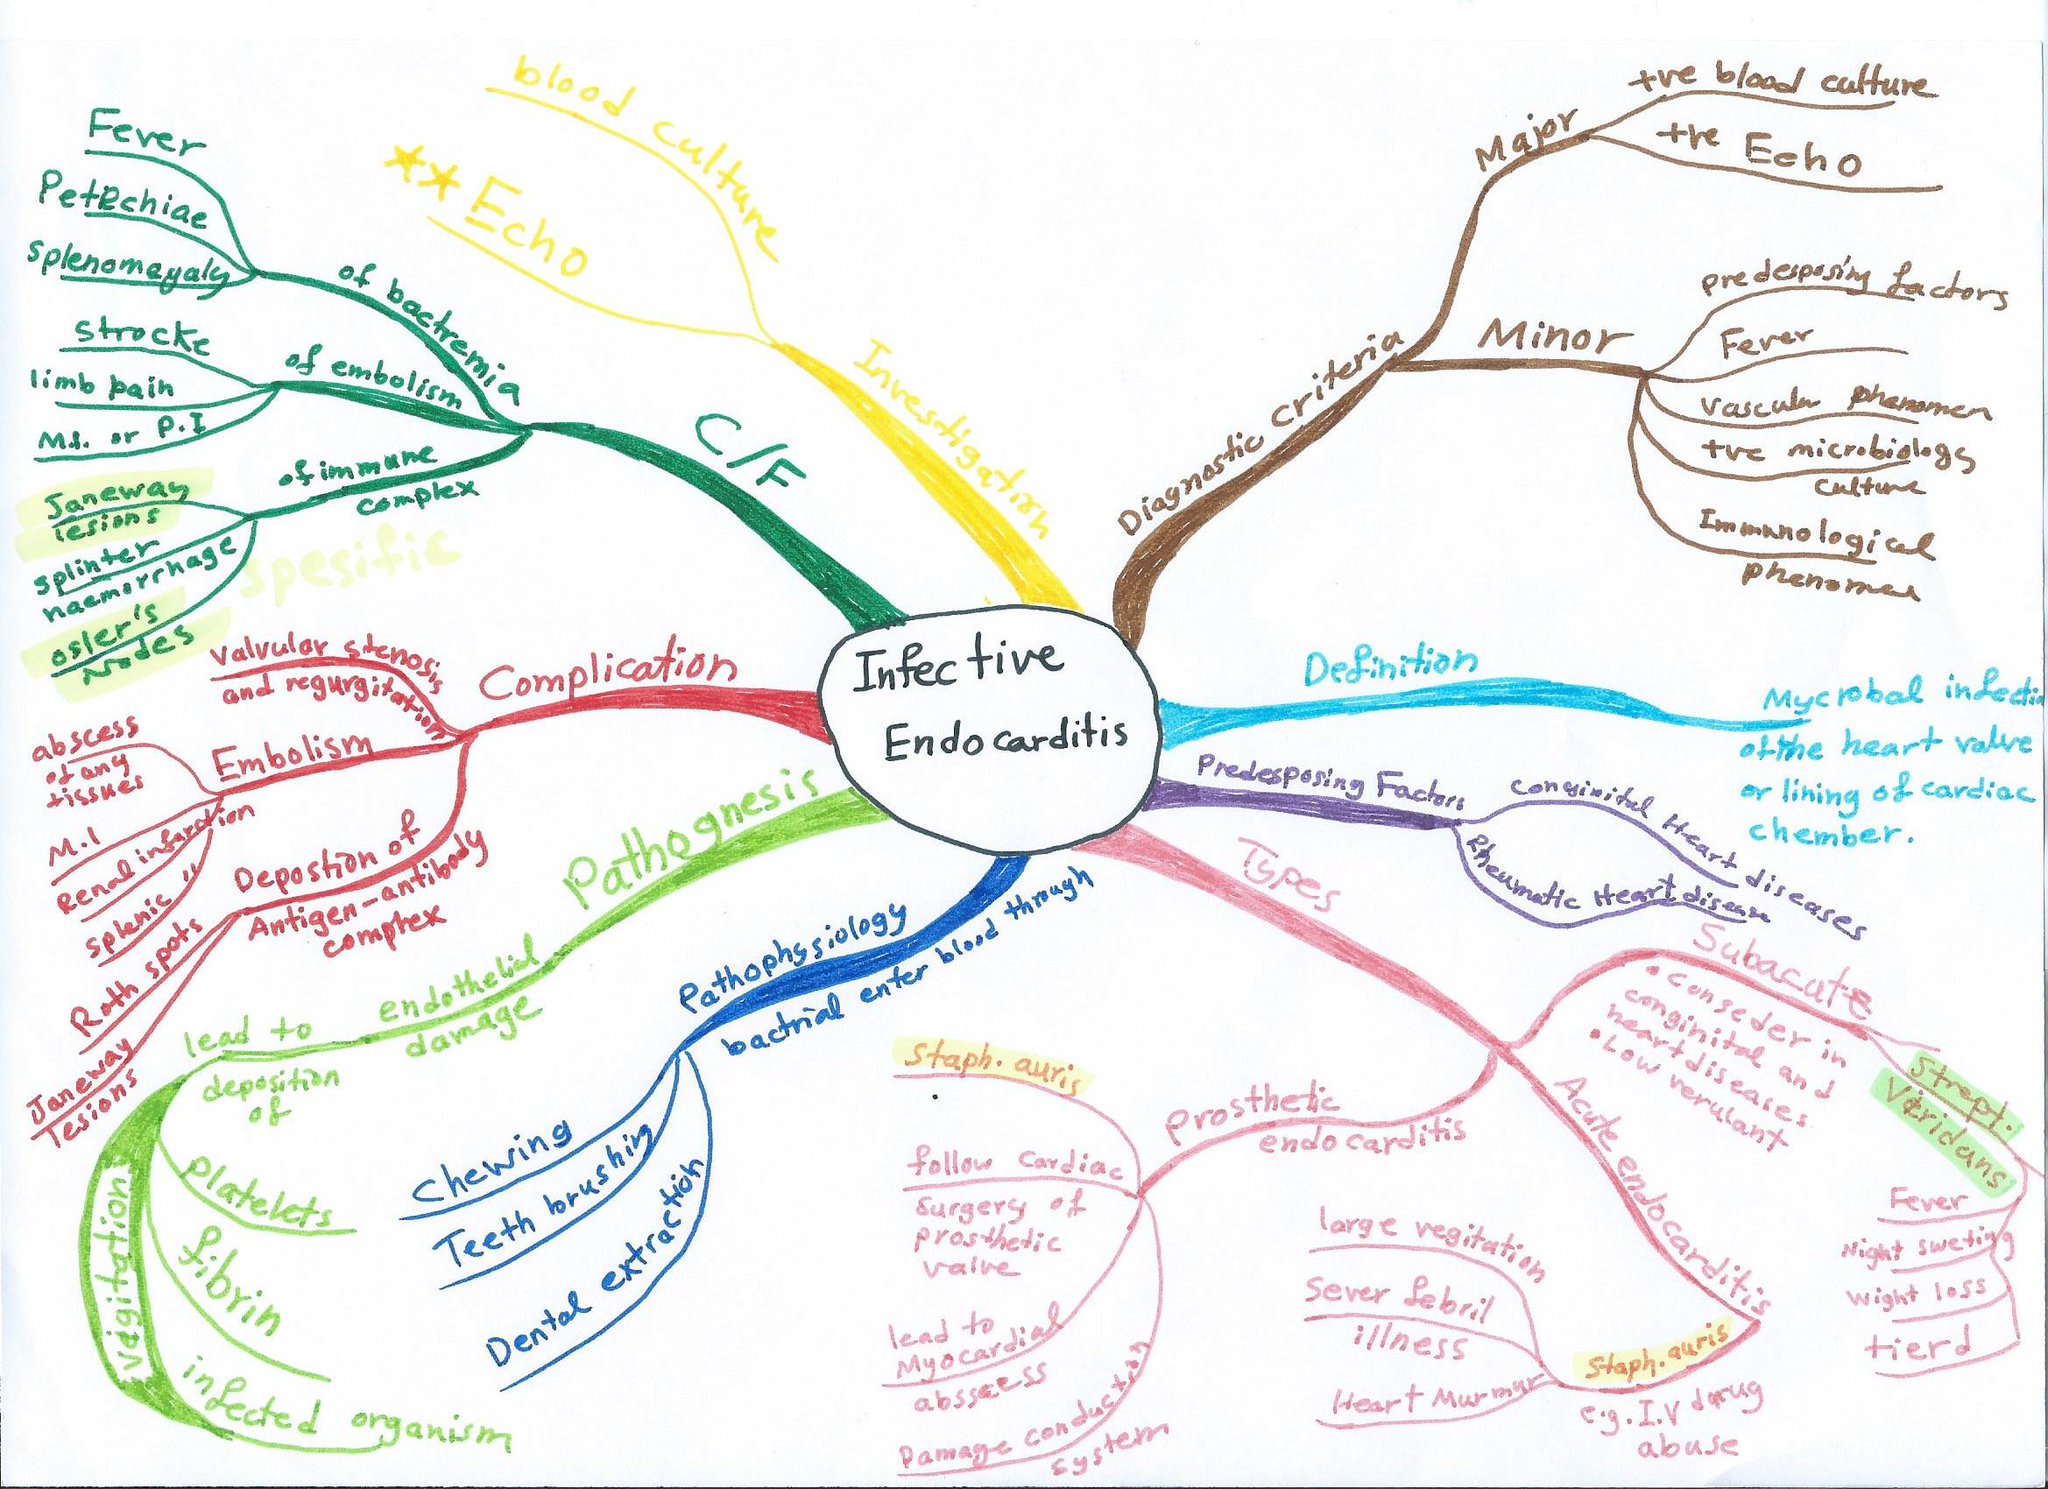 Infective
Endocarditis
Definition
Mycrobal infectio
of the heart valve
or lining of cardiac
chember.
Predesposing Factors
Conginital Heart diseases
Rheumatic Heart disease
Types
Subacute
• Conseder in
conginital and
heart diseases
• Low verulant
Strept.
Viridans
Fever
Night sweting
wight loss
tierd
Acute endocarditis
Staph. auris
e.g. I.V drug
abuse
large vegitation
sever febril
illness
Heart Murmur
prosthetic
endocarditis
Staph. auris
follow cardiac
surgery of
prosthetic
valve
lead to
Myocardial
abssess
Damage conductiity
system
Pathophysiology
bactrial enter blood through
Chewing
Teeth brushing
Dental extraction
Pathognesis
endothelial
damage
lead to
deposition
of
platelets
fibrin
infected organism
Vegitations
Complication
valvular stenosis
and regurgitation
Embolism
abscess
of any
tissues
M.I
Renal infarction
splenic "
Depostion of
Antigen-antibody
complex
Roth spots
Janeway
lesions
C/F
of bactremia
Fever
Petechiae
splenomegaly
of embolism
strocke
limb pain
M.I. or P.I
of immune
complex
Janeway
lesions
splinter
haemorrhage
osler's
Nodes
spesific
Investigation
blood culture
★★ Echo
Diagnostic criteria
Major
+ve blood culture
+ve Echo
Minor
predesposing factors
Fever
vascular phenomen
+ve microbiology
culture
Immunological
phenomen